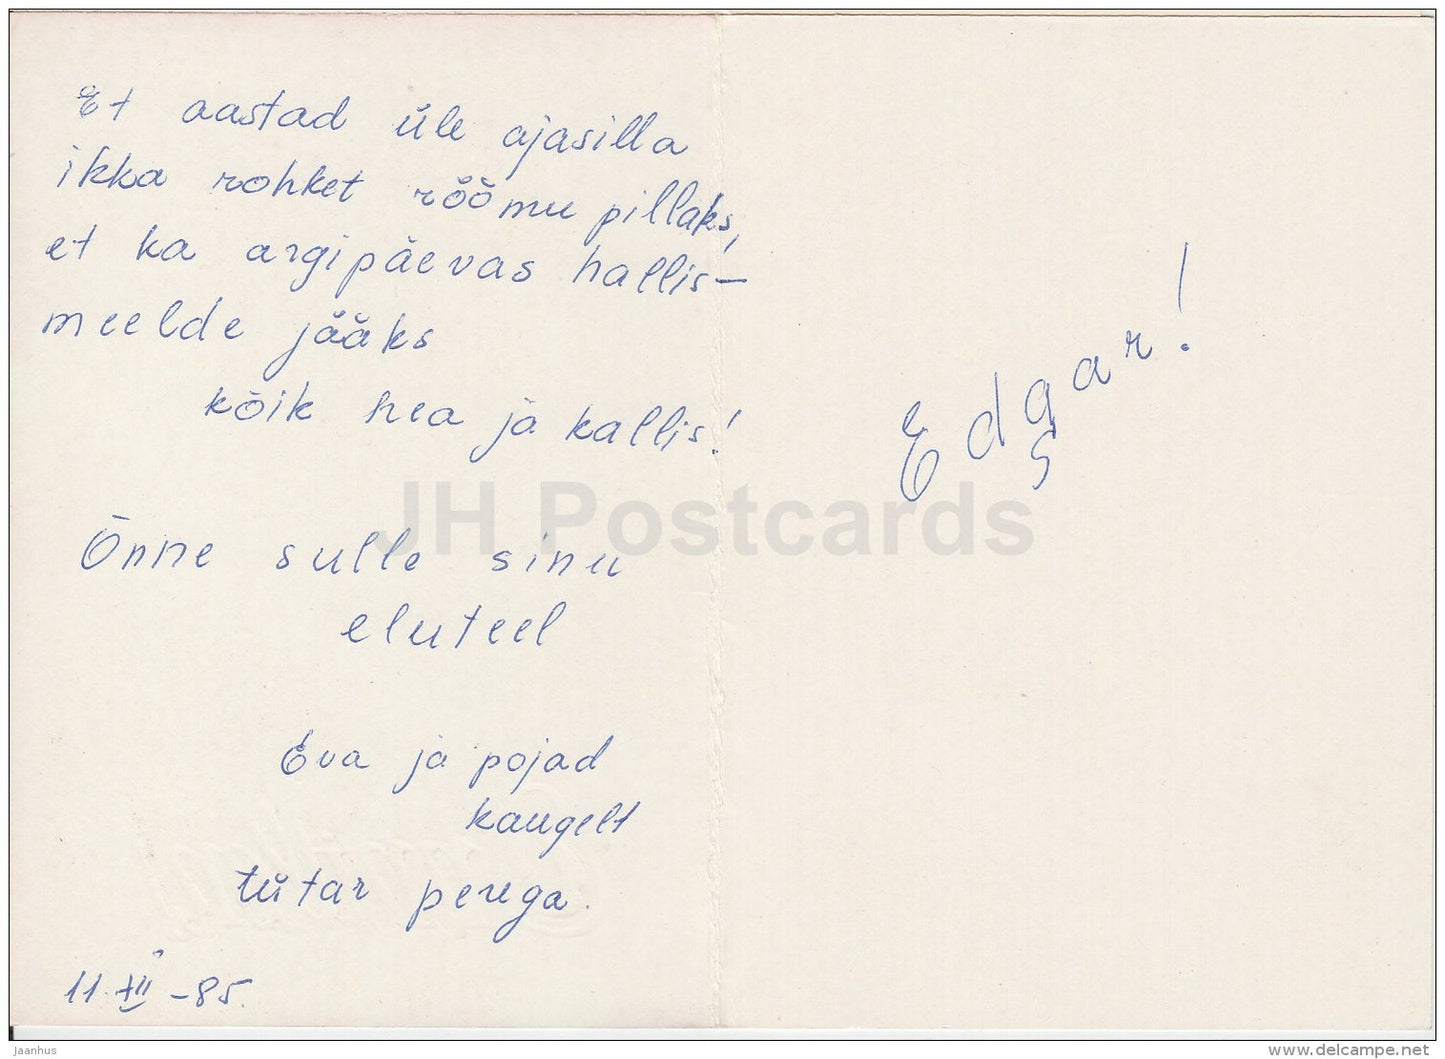 Et aastad üle ajasilla
ikka rohket rõõmu pillaks,
et ka argipäevas hallis –
meelde jääks
kõik hea ja kallis!
Õnne sulle sinu
eluteel
Eva ja pojad
kaugelt
tütar perega.
11. XII -85.
Edgar!
JH Postcards
jaanhus
delcampe.net